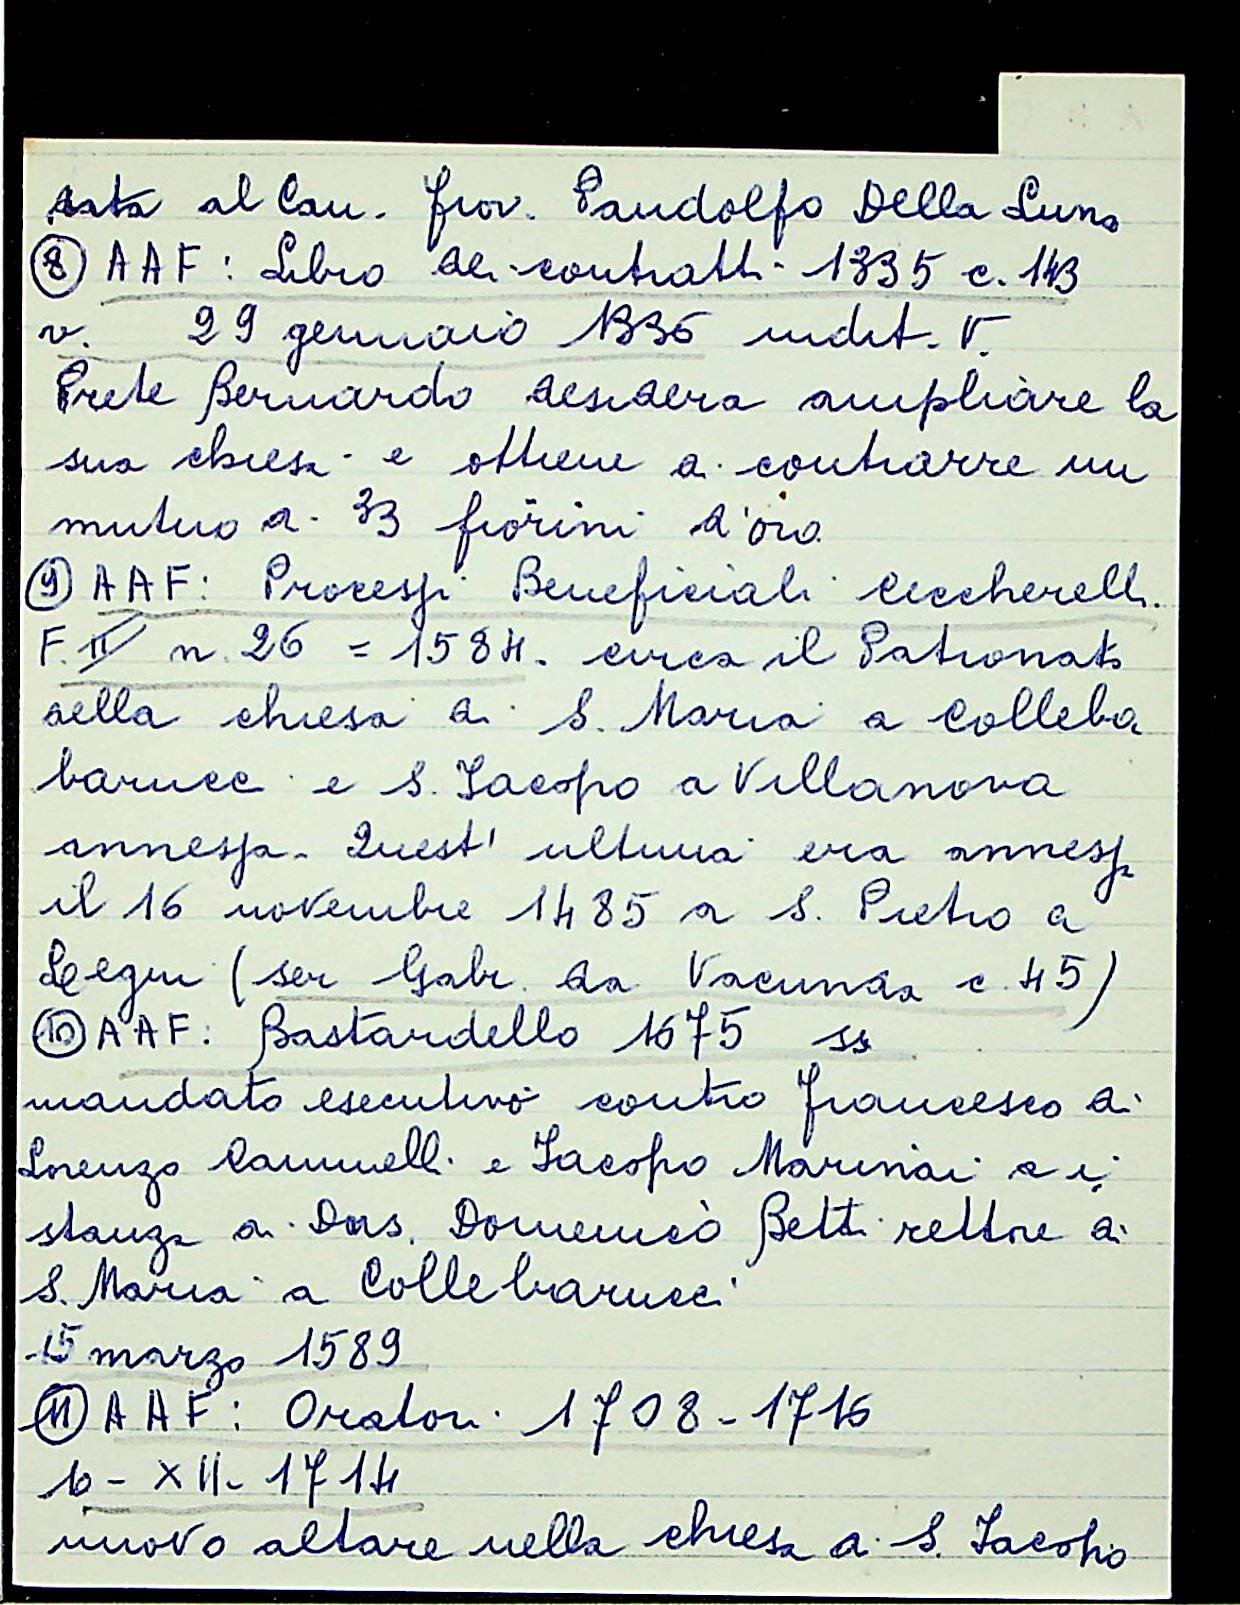 data al Can. Giov. Pandolfo Della Luna
⑧ AAF: Libro di contratti 1335 c. 143
v. 29 gennaio 1336 indit. V.
Prete Bernardo desidera ampliare la
sua chiesa e ottiene di contrarre un
mutuo di 33 fiorini d'oro
⑨ AAF: Processi Beneficiali Ceccherelli
F. II n. 26 = 1584. circa il Patronato
della chiesa di S. Maria a Colleba
barucci e S. Jacopo a Villanova
annessa. Quest' ultima era annessa
il 16 novembre 1485 a S. Pietro a
Legri (ser Gabr. da Vacunda c. 45)
⑩ AAF: Bastardello 1675 ss
mandato esecutivo contro Francesco di
Lorenzo Cammelli e Jacopo Marinai a i
stanza di Dns. Domenico Betti rettore di
S. Maria a Collebarucci
15 marzo 1589
⑪ AAF: Oratori 1708-1716
10 - XII - 1714
nuovo altare nella chiesa di S. Jacopo